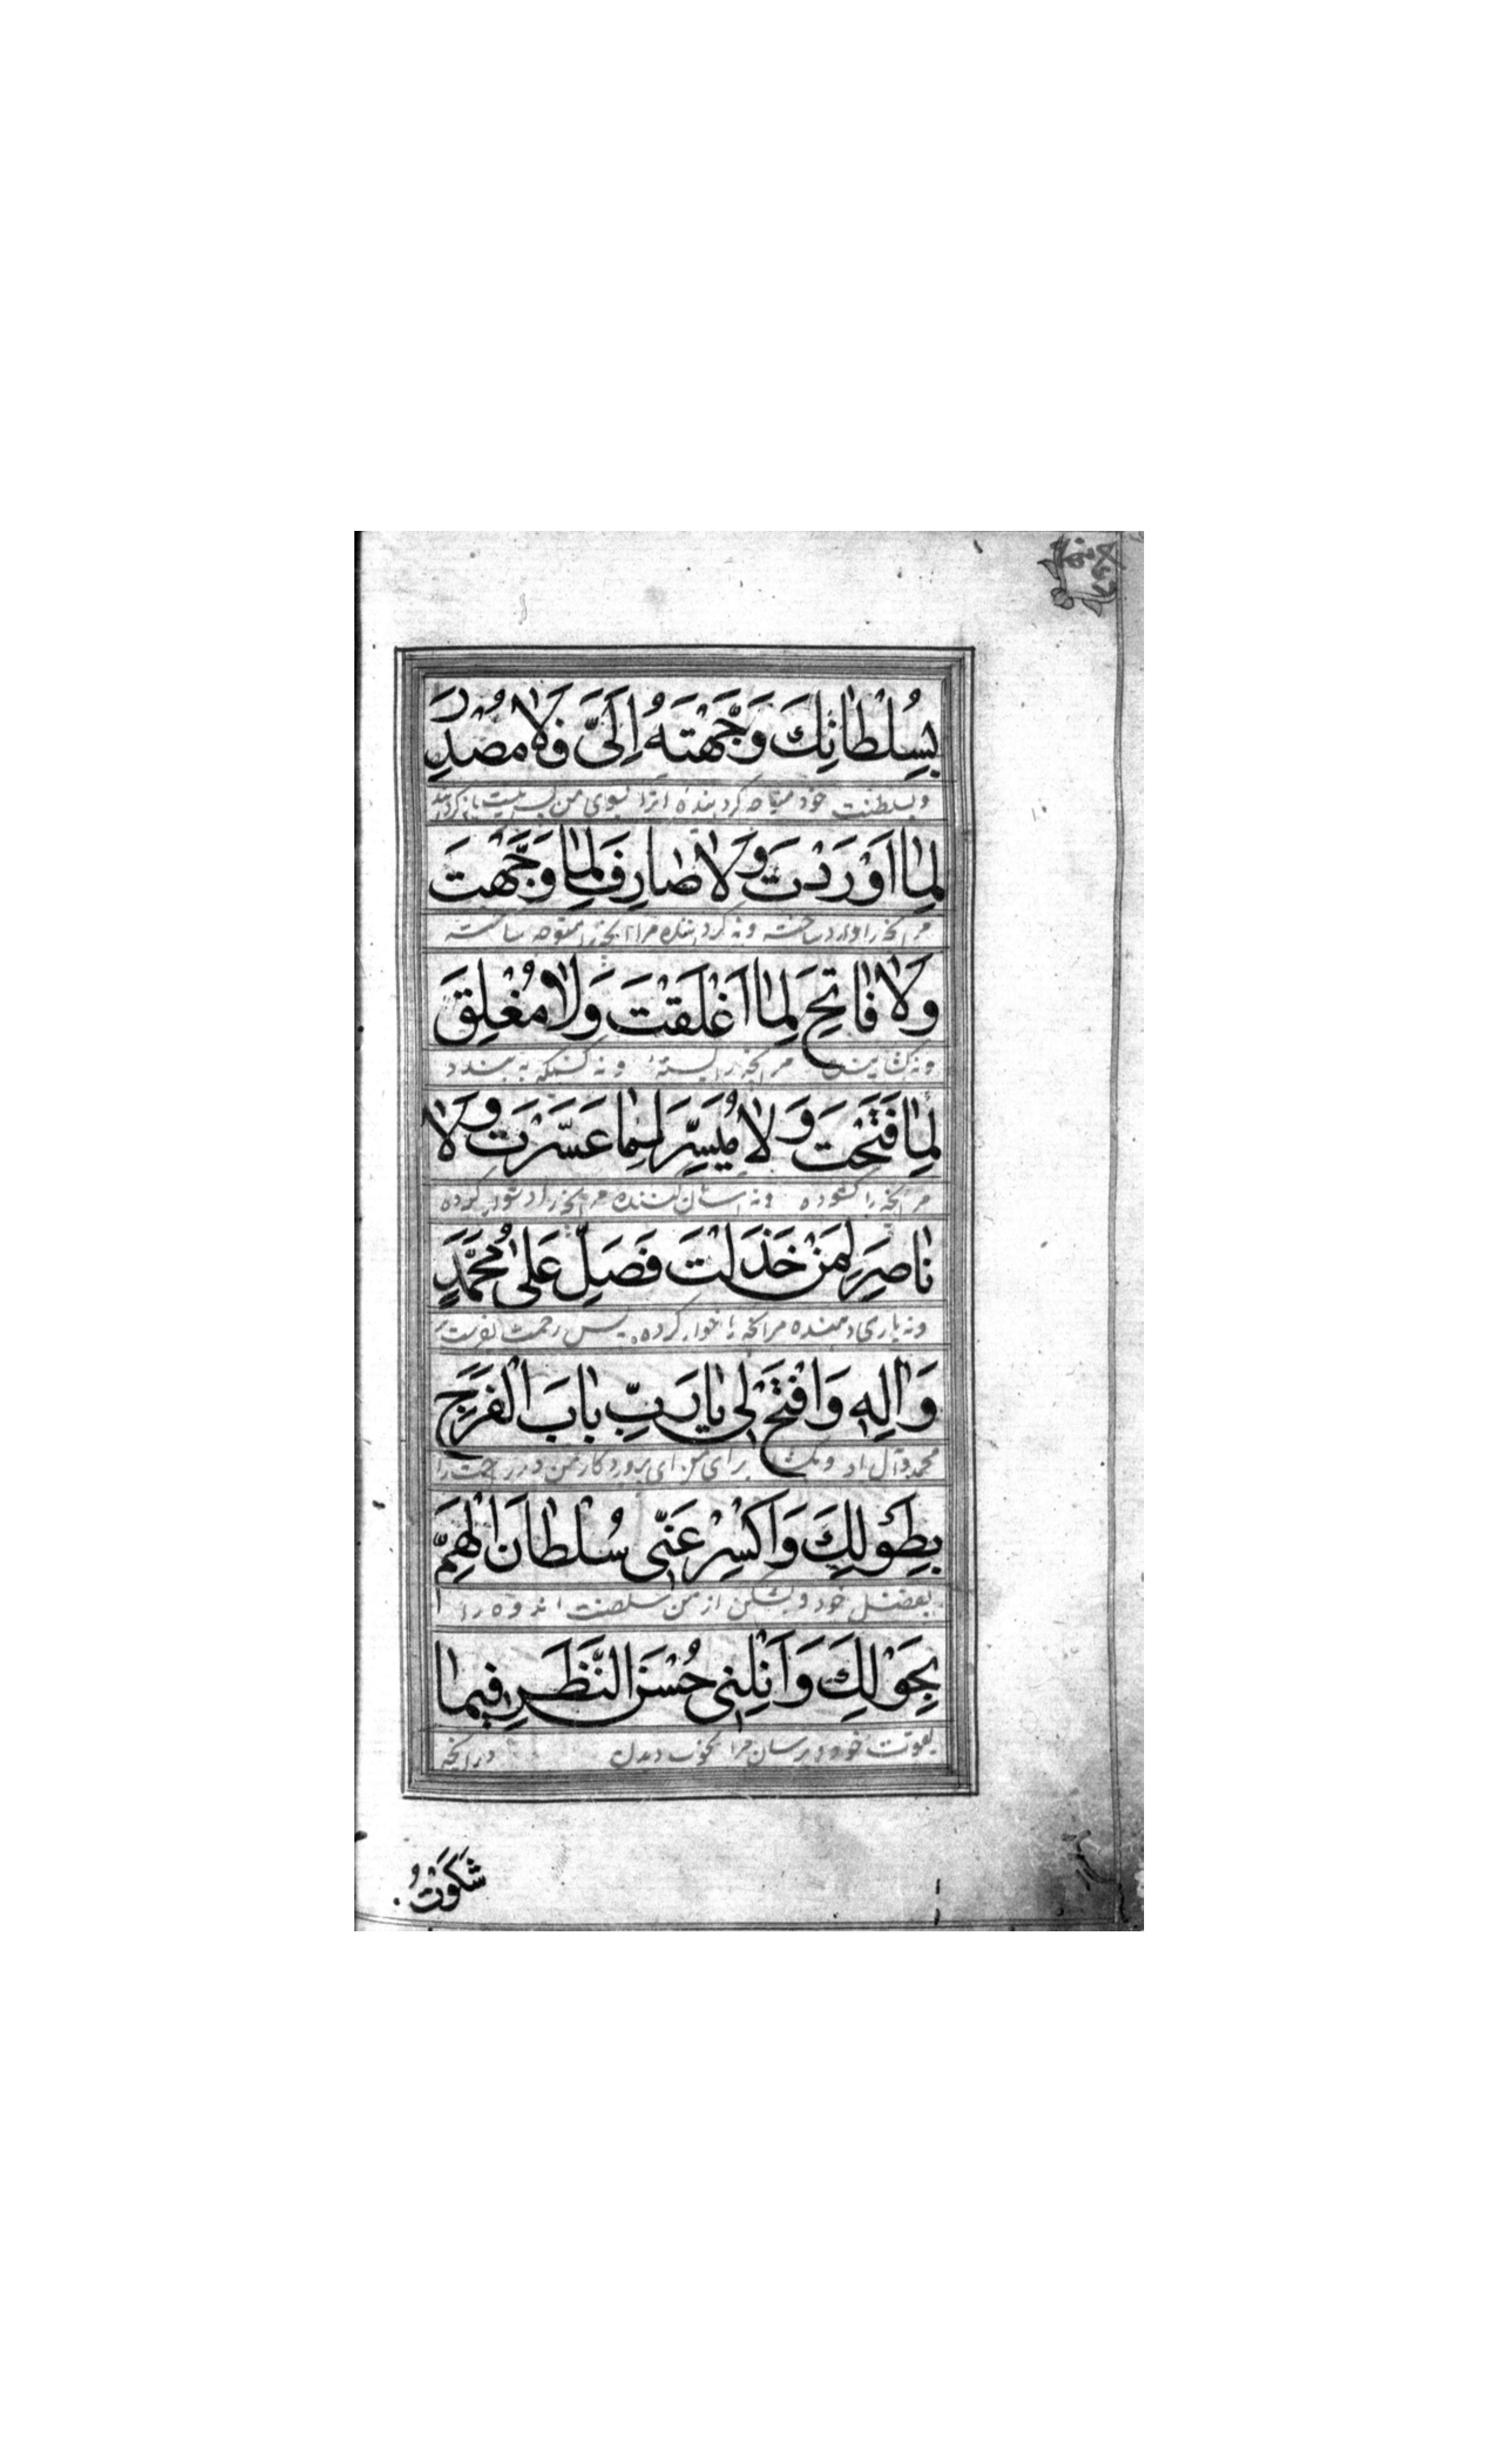 بِسُلْطانِكَ وَجَّهْتَهُ اِلَىَّ فَلا مُصْدِرَ
وبسلطنت خود متوجه گردانیده انرا بسوی من پس نیست بازگرداننده
لِما اَوْرَدْتَ وَلا صارِفَ لِما وَجَّهْتَ
مر انچه را وارد ساخته ونه گرداننده مر انچه را متوجه ساخته
وَلا فاتِحَ لِما اَغْلَقْتَ وَلا مُغْلِقَ
ونه گشاینده مر انچه را بسته ونه کسیکه به بندد
لِما فَتَحْتَ وَلا مُيَسِّرَ لِما عَسَّرْتَ وَلا
مر انچه را گشوده ونه اسان کننده مر انچه را دشوار کرده
ناصِرَ لِمَنْ خَذَلْتَ فَصَلِّ عَلى مُحَمَّدٍ
ونه یاری دهنده مر انچه را خوار کرده پس رحمت بفرست بر
وَالِهِ وَافْتَحْ لى يا رَبِّ بابَ الْفَرَجِ
محمد وآل او وبگشا برای من ای پروردگار من در رحمت را
بِطَوْلِكَ وَاكْسِرْ عَنّى سُلْطانَ الْهَمِّ
بفضل خود وبشکن از من سلطنت اندوه را
بِحَوْلِكَ وَاَنِلْنى حُسْنَ النَّظَرِ فيما
بقوت خود وبرسان مرا بخوب دیدن درانچه
شَكَوْتُ